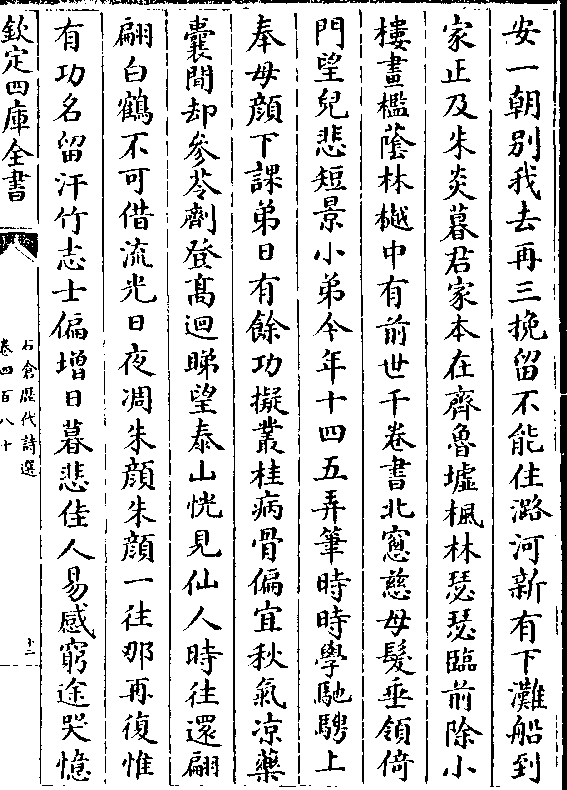 安一朝别我去再三挽留不能住潞河新有下灘船到
家正及朱炎暮君家本在齊魯墟楓林瑟瑟臨前除小
樓畫檻蔭林樾中有前世千卷書北窻慈母髮垂領倚
門望兒悲短景小弟今年十四五弄筆時時學馳騁上
奉母顔下課弟日有餘功擬叢桂病骨偏宜秋氣凉藥
囊間却參苓劑登髙迴睇望泰山恍見仙人時往還翩
翩白鶴不可借流光日夜凋朱顔朱顔一往那再復惟
有功名留汗竹志士偏增日暮悲佳人易感窮途哭憶
欽定四庫全書
石倉歷代詩選
卷四百八十
十二